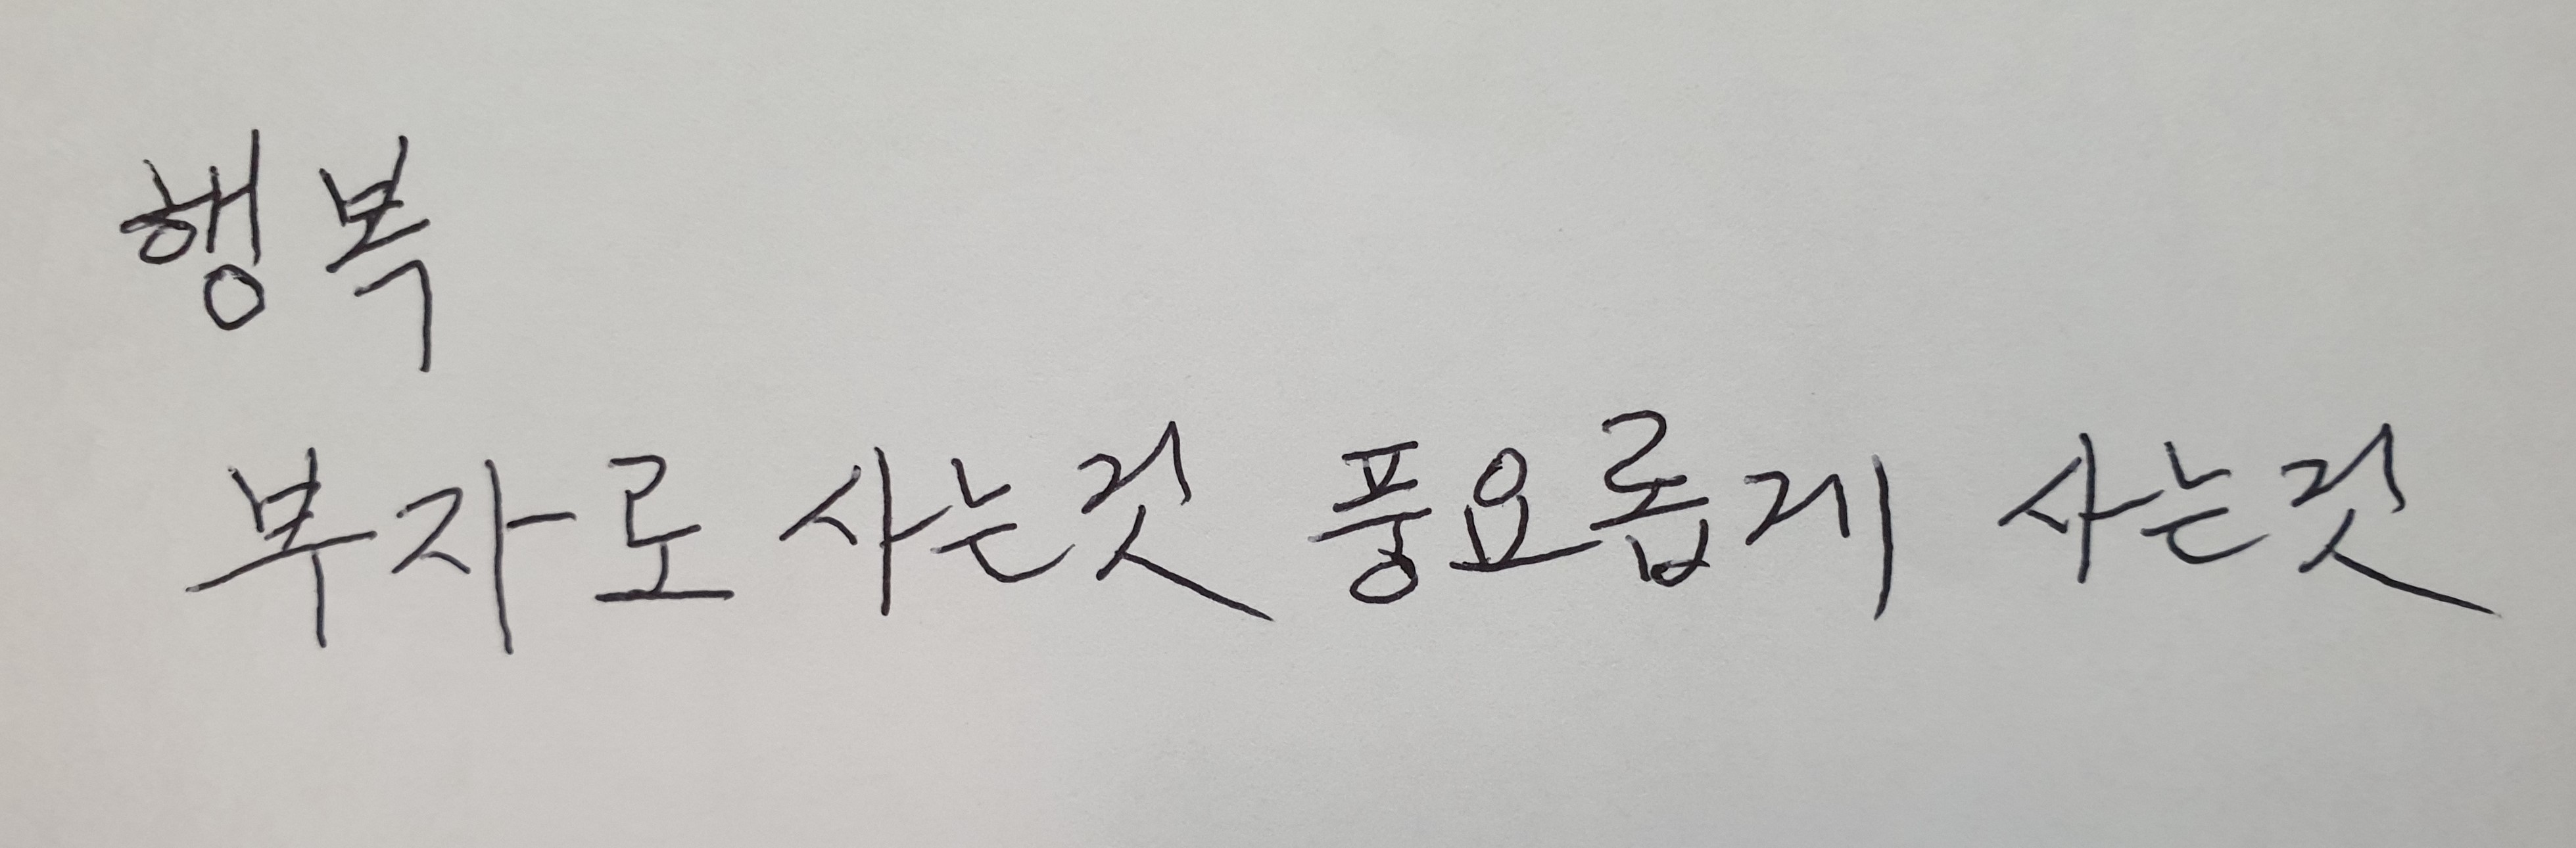 행복
부자로 사는것 풍요롭게 사는것